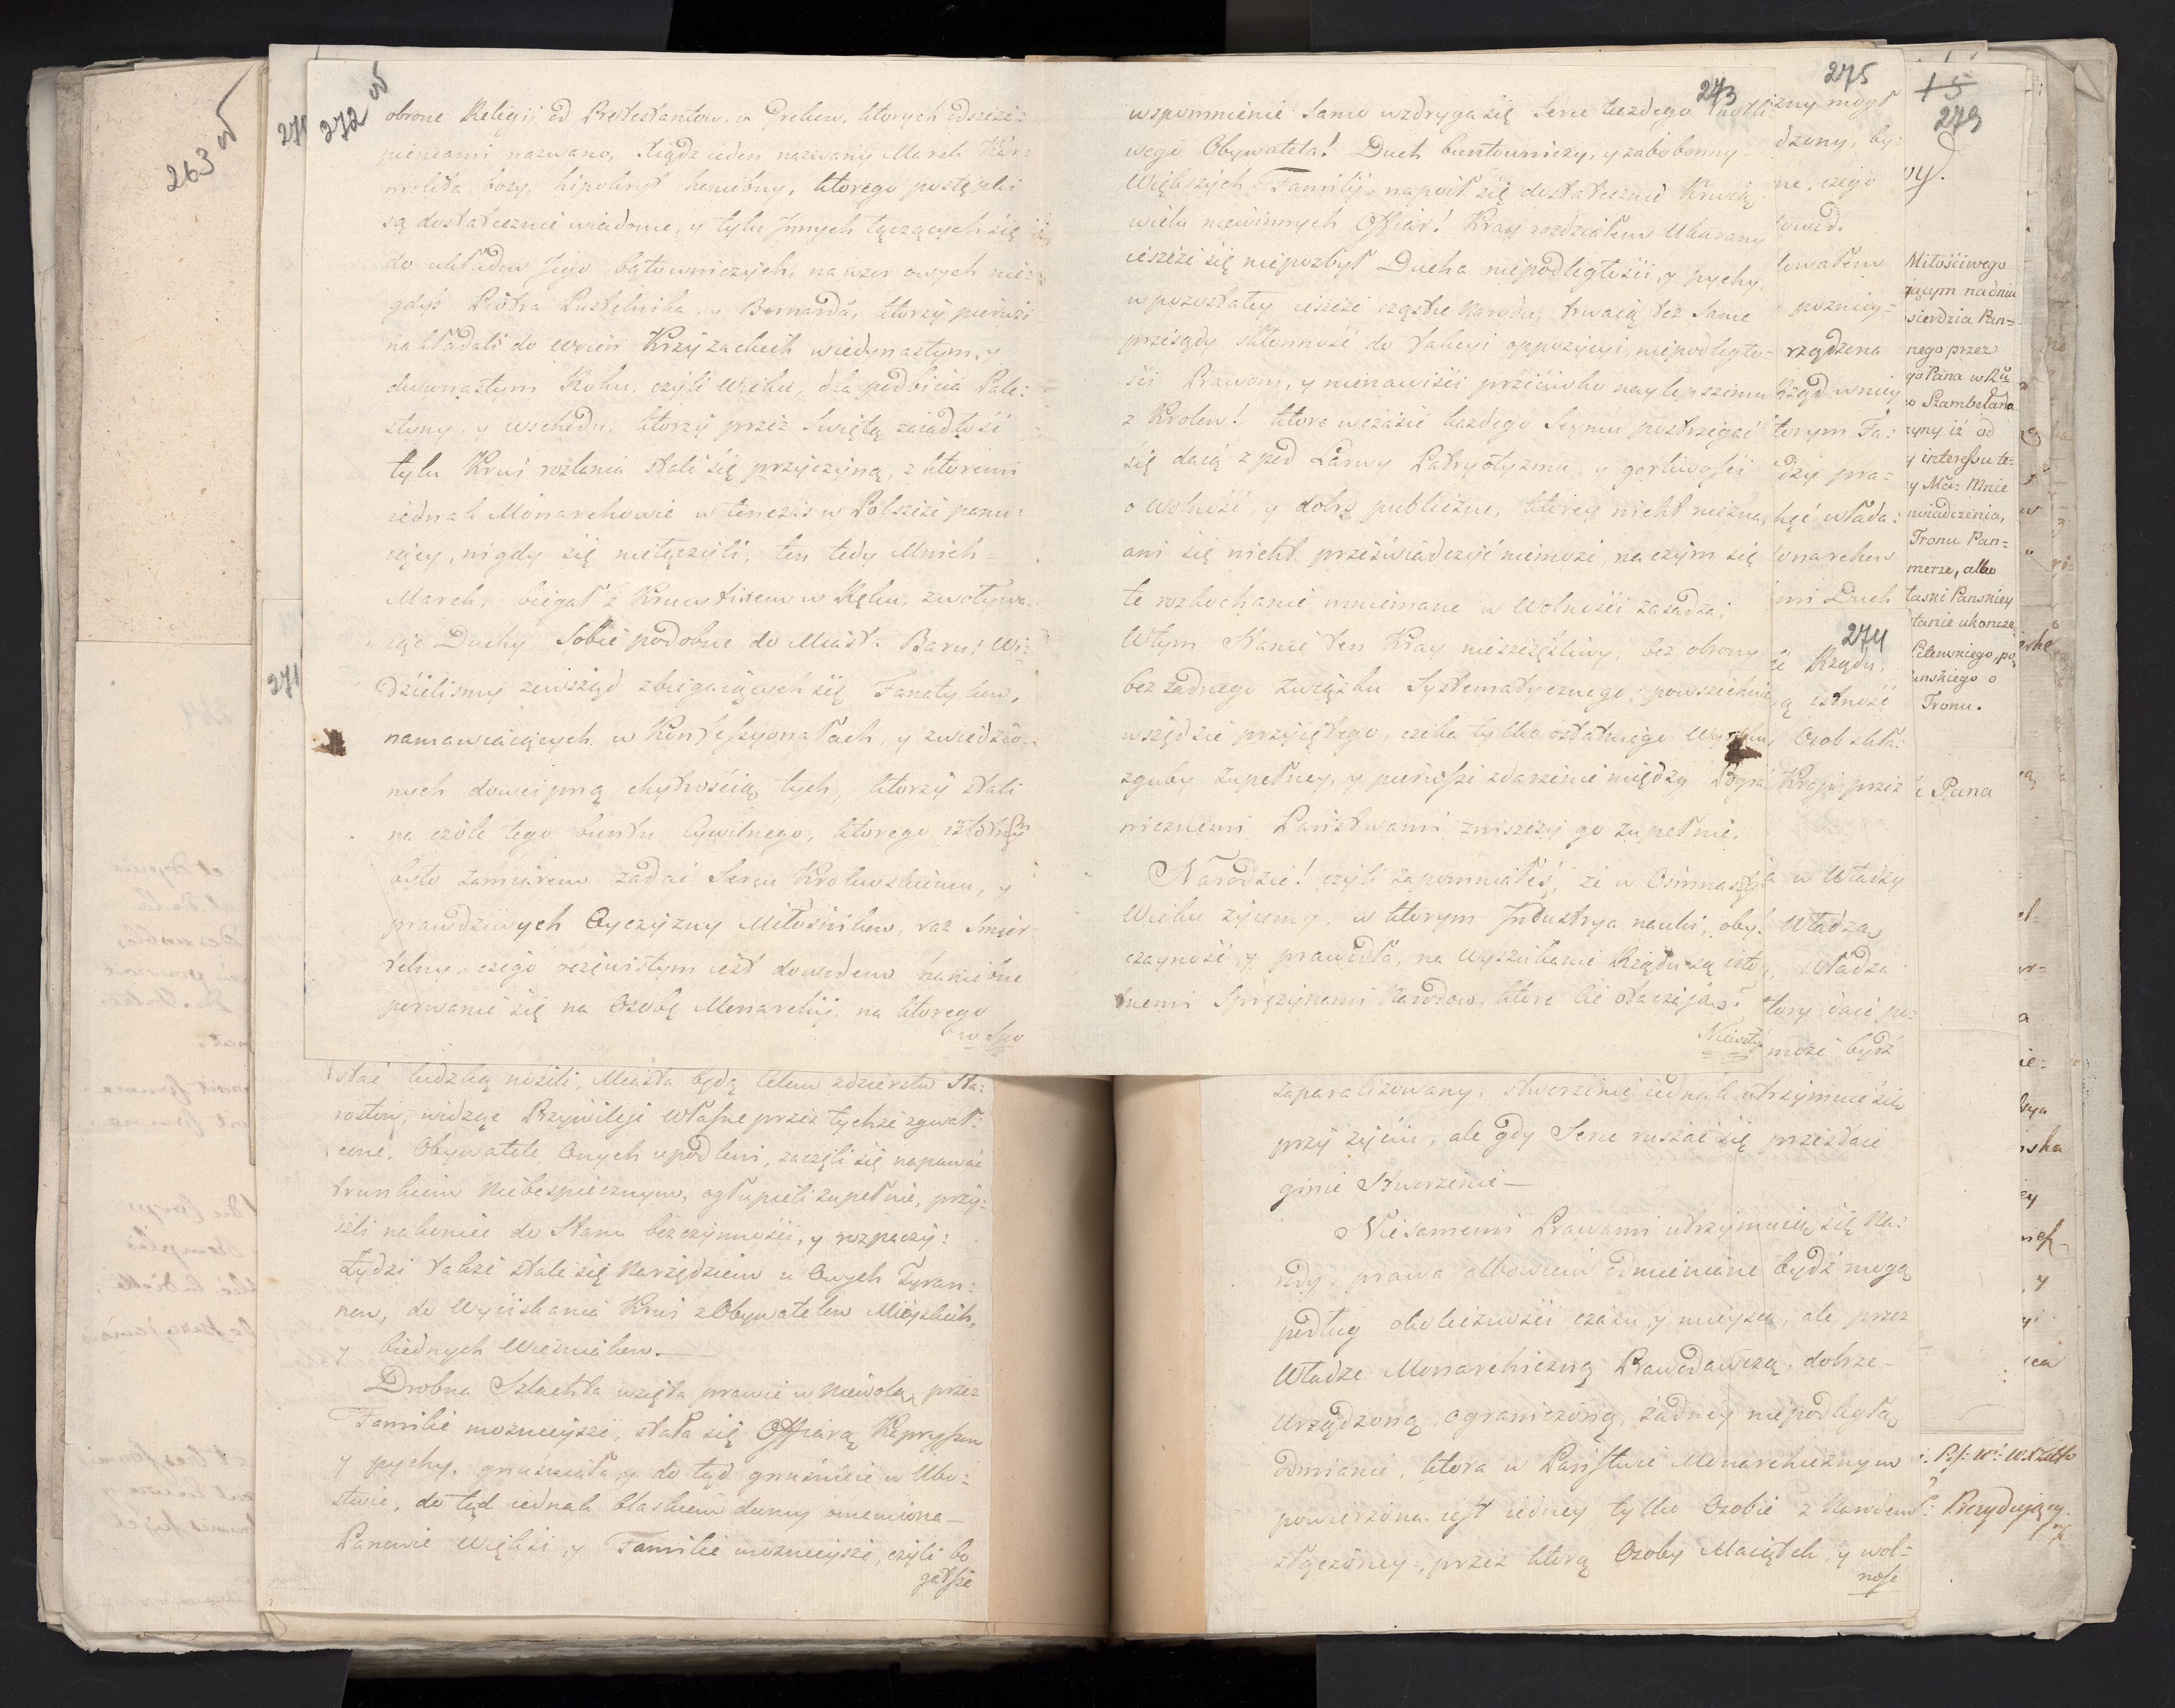 263 v
271
272 v
obronę Religij od Protestantow, y Grekow, ktorych odszcze:
pieńcami nazwano, Xiądz ieden nazwany Marek Kar:
melita bosy, hipokryt haniebny, ktorego postępki
są dostatecznie wiadome, y tylu Innych łączących się
do układow Jego bątowniczych, na wzor owych nie:
gdyś Piotra Pustelnika, y Bernarda, ktorzy pierwsi
nakładali do woien Krzyżackich w iedynastym, y
dwunastym Roku, czyli Wieku, dla podbicia Pale:
styny, y wschodu, ktorzy przez Swiętą zaiadłość
tylu Krwi rozlania stali się przyczyną, z ktoremi
iednak Monarchowie w tenczas w Polszcze panu:
iący, nigdy się nie łączyli, ten tedy Mnich
Marek, biegał z Krucyfixem w Ręku, zwoływa:
iąc Duchy Sobie podobne do Miasta Baru; Wi:
dzielismy zewsząd zbiegaiących się Fanatykow,
namawiaiących w Konfessyonałach, y zwiedzio:
nych dowcipną chytrością tych, ktorzy stali
na czole tego buntu Cywilnego, ktorego istotnym
było zamiarem zadać Sercu Krolewskiemu, y
prawdziwych Oyczyzny Miłośnikow, raz Smier:
telny, czego oczywistym iest dowodem haniebne
porwanie się na Osobę Monarchij, na ktorego
wspo
271
stać ludzką nosili, Miasta będą celem zdzierstw Sta:
rostow, widząc Przywileje własne przez tychże zgwał:
cone, Obywatele Onych upodleni, zaczęli się napawać
trunkiem niebespiecznym, ogłupieli zupełnie, przy:
szli nakoniec do Stanu bezczynności, y rozpaczy:
Łydzi także stale się narzędziem u Owych Tyran:
now, do wyciskania Krwi z Obywatelow Mieyskich,
y biednych Wieśniakow.—
Drobna Szlachta wzięta prawie w niewolą przez
Familie możnieysze, stała się Offiarą Kaprysow
y pychy, gnuśniała, y do tąd gnuśnieie w Ubo:
stwie, do tąd iednak blaskiem dumy omamiona—
Panowie Więksi, y Familie możnieysze, czyli bo
gatsze
273
wspomnienie Samo wzdryga się Serce każdego poczci:
wego Obywatela! Duch buntowniczy, y zabobonny
Większych Familij, napoił się dostatecznie Krwią
wielu niewinnych Offiar! Kray rozdziałem Ukarany
ieszcze się niepozbył Ducha niepodległości, y pychy,
w pozostałey ieszcze cząstce Narodu, trwaią też Same
przesądy skłonność do takeyi oppozycyi, niepodległo:
ści Prawom, y nienawiści przeciwko naylepszemu
z Krolow! ktore w czasie każdego Seymu postrzegać
się daią z pod Larwy Patryotyzmu, y gorliwości
o Wolność, y dobro publiczne, ktorey nicht niezna,
ani się nicht przeświadczyć niemoże, na czym się
te rozkochanie mniemane w Wolności zasadza;
W tym Stanie ten Kray nieszczęśliwy, bez obrony
bez żadnego związku Systematycznego, powszechnie
wszędzie przyiętego, czeka tylko ostatniego
zguby zupełney, y pierwsze zdarzenie między Pogra
nicznemi Państwami zniszczy go zupełnie.
Narodzie! czyli zapomniałeś, że w Osimnastym
Wieku żyiemy, w ktorym Industrya nauki, oby:
czayność, y prawidła, na wyszukanie Rządu są isto
tnemi Sprężynami Narodow, ktore Cie otaczaią?
Nieszty
275
zny mogł
dzony, by:
ne, czego
owad.
towałem
pozniey=
rządzona
Rząd w niey
torym Fa:
dzy pra=
hęć włada:
onarchow
imi Duch
274
ie Rządu,
ą istność
Osob skła:
Kraju przez
a w Władzy
Władza
władza
tory daie po=
może bydź
zaparalizowany, stworzenie iednak utrzymuie się
przy życiu, ale gdy Serce ruszać się przestaie
ginie Stworzenie—
Nie samemi Prawami utrzymuią się Na:
rody, prawa albowiem odmienione bydź mogą
podług okoliczności czasu, y mieysca, ale przez
Władze Monarchiczną Prawodawczą, dobrze
urządzoną, ograniczoną, żadney niepodległą
odmianie, ktora w Państwie Monarchicznym
powierzona iest iedney tylko Osobie z Narodem
złączoney, przez ktorą Osoby Maiątek, y wol=
ność
15
279
wy.
Miłościwego
iącym nadnia
sierdzia Pan=
nego przez
go Pana w Ru
w Szambelana
zyny iż od
y interessu te=
y Ma: Mnie
nwiadczenia,
Tronu Pan=
merze, albo
łaski Panskiey
tanie ukoncze
Cilewskiego, po
inskiego o
Tronu.
i Pana
Prezydujący.